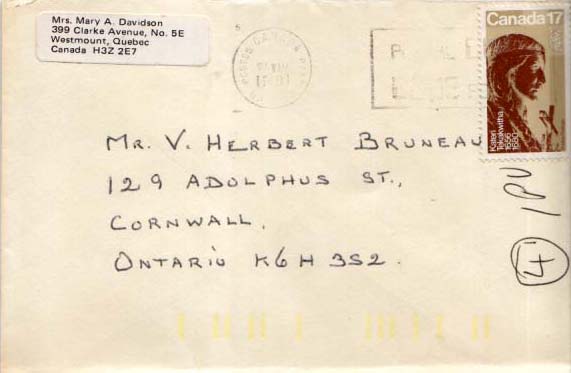 Mrs. Mary A. Davidson
399 Clarke Avenue, No. 5E
Westmount, Quebec
Canada H3Z 2E7
CANADA
Canada 17
Kateri
Tekakwitha
1656
1680
MR. V. HERBERT BRUNEAU
129 ADOLPHUS ST.,
CORNWALL,
ONTARIO K6H 3S2.
4